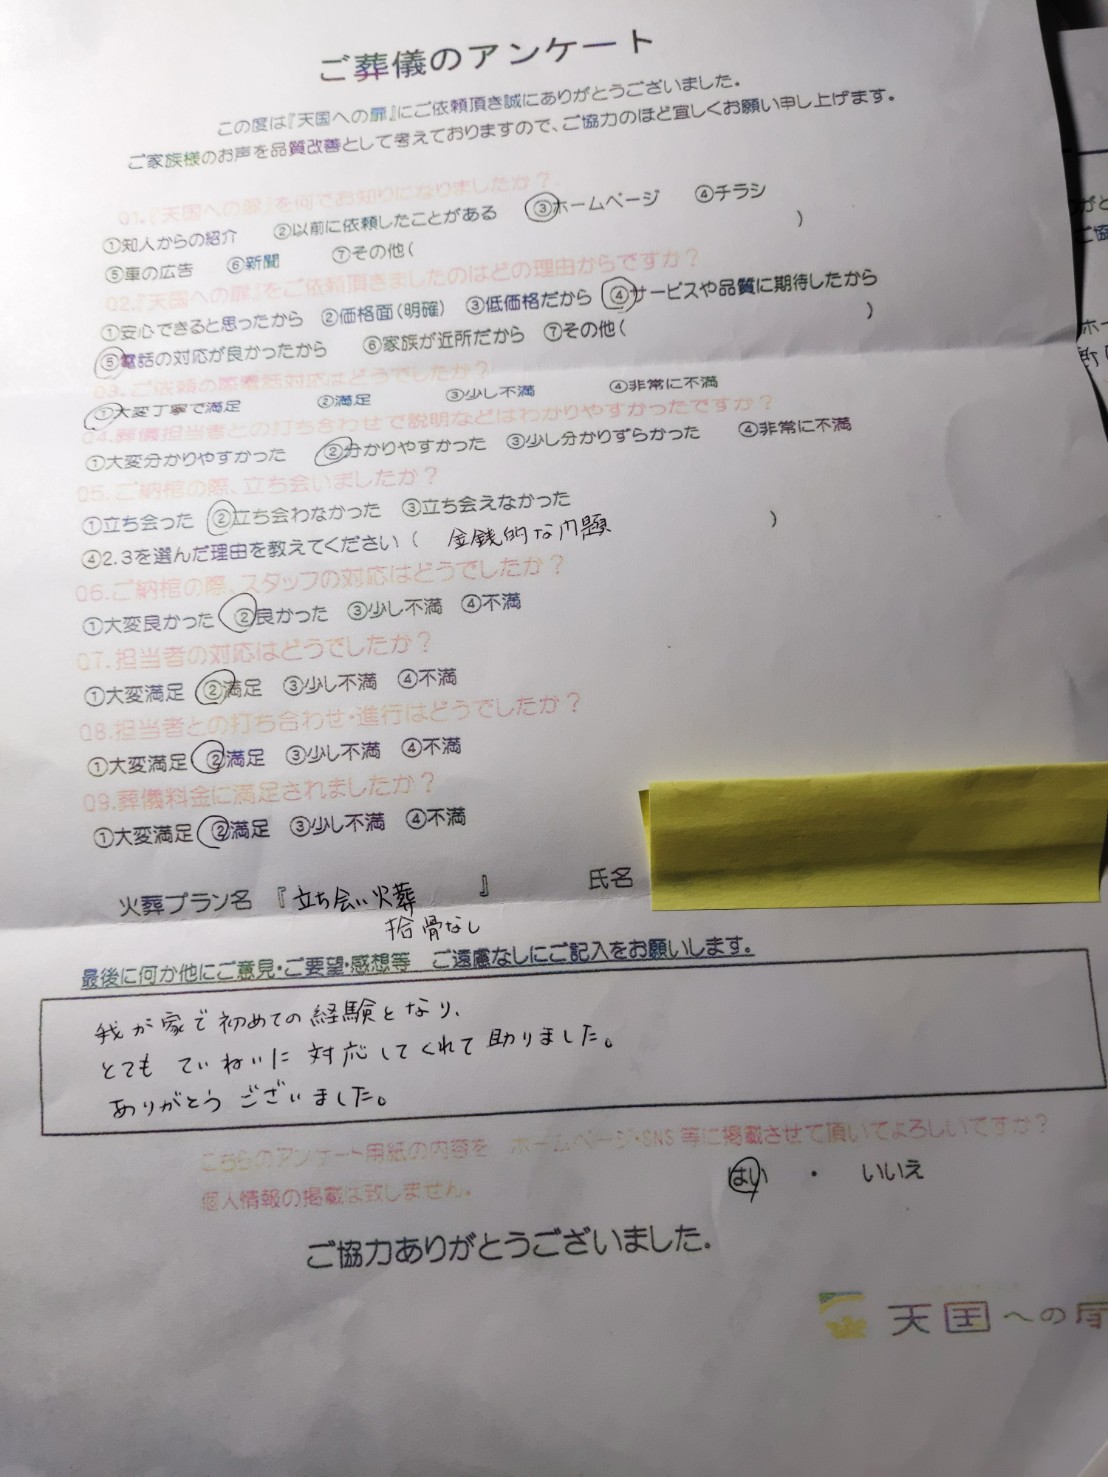 ご葬儀のアンケート
この度は『天国への扉』にご依頼頂き誠にありがとうございました。
ご家族様のお声を品質改善として考えておりますので、ご協力のほど宜しくお願い申し上げます。
Q1.『天国への扉』を何でお知りになりましたか？
①知人からの紹介 ②以前に依頼したことがある ③ホームページ ④チラシ
⑤車の広告 ⑥新聞 ⑦その他( )
Q2.『天国への扉』をご依頼頂きましたのはどの理由からですか？
①安心できると思ったから ②価格面(明確) ③低価格だから ④サービスや品質に期待したから
⑤電話の対応が良かったから ⑥家族が近所だから ⑦その他( )
Q3.ご依頼の際電話対応はどうでしたか？
①大変丁寧で満足 ②満足 ③少し不満 ④非常に不満
Q4.葬儀担当者との打ち合わせで説明などはわかりやすかったですか？
①大変分かりやすかった ②分かりやすかった ③少し分かりずらかった ④非常に不満
Q5.ご納棺の際、立ち会いましたか？
①立ち会った ②立ち会わなかった ③立ち会えなかった
④2.3を選んだ理由を教えてください( 金銭的な問題 )
Q6.ご納棺の際、スタッフの対応はどうでしたか？
①大変良かった ②良かった ③少し不満 ④不満
Q7.担当者の対応はどうでしたか？
①大変満足 ②満足 ③少し不満 ④不満
Q8.担当者との打ち合わせ・進行はどうでしたか？
①大変満足 ②満足 ③少し不満 ④不満
Q9.葬儀料金に満足されましたか？
①大変満足 ②満足 ③少し不満 ④不満
火葬プラン名 『立ち会い火葬 』 氏名
拾骨なし
最後に何か他にご意見・ご要望・感想等 ご遠慮なしにご記入をお願いします。
我が家で初めての経験となり、
とても ていねいに 対応してくれて助りました。
ありがとう ございました。
こちらのアンケート用紙の内容を ホームページ・SNS等に掲載させて頂いてよろしいですか？
個人情報の掲載は致しません。 はい ・ いいえ
ご協力ありがとうございました。
天国への扉